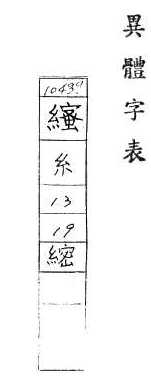 異體字表
10439
糸
13
19